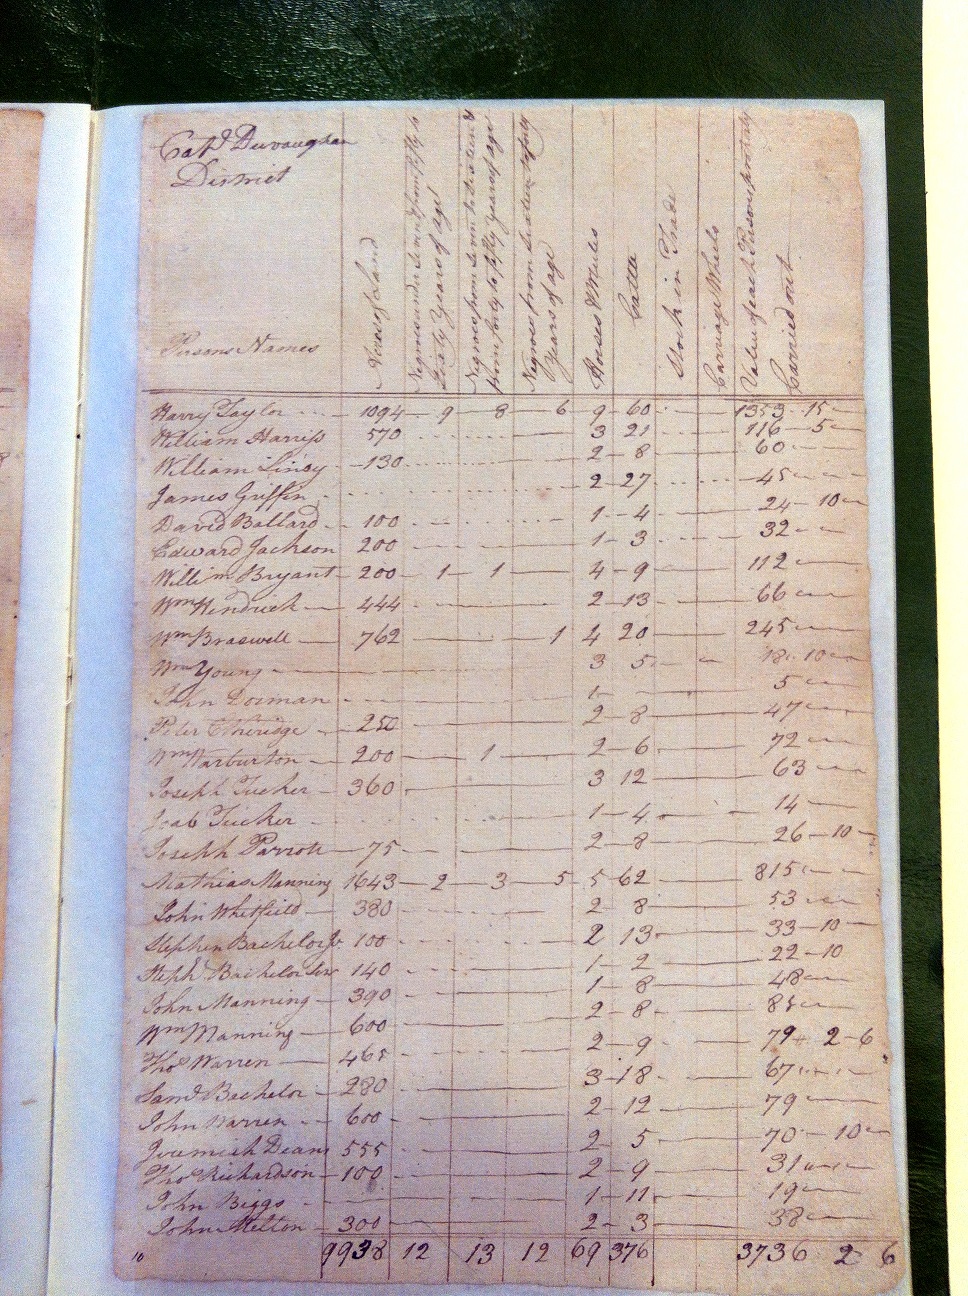 Capt Duvaughan
District
Persons Names
Acres of Land
Negroes under seven & from fifty to
Sixty Years of age
Negroes from seven to sixteen &
from forty to fifty years of age
Negroes from sixteen to forty
Years of age
Horses & Mules
Cattle
Stock in Trade
Carriage Wheels
Value of each Persons proverty
Carried out
Harry Taylor 1094 9 8 6 9 60 1353 15
William Harriss 570 3 21 116 5
William 130 2 8 60
James Griffin 2 27 45
David Ballard 100 1 4 24 10
Edward Jackson 200 1 3 32
William Bryant 200 1 1 4 9 112
Wm Kendrick 444 2 13 66
Wm Braswell 762 1 4 20 245
Wm Young 3 5 18 10
John Dorman 1 5
Peter Etheridge 250 2 8 47
Wm Warburton 200 1 2 6 72
Joseph Tucker 360 3 12 63
Joab Tucker 1 4 14
Joseph Parrott 75 2 8 26 10
Mathias Manning 1643 2 3 5 5 62 815
John Whitfield 380 2 8 53
Stephen Bachelor Jr 100 2 13 33 10
Steph Bachelor Senr 140 1 2 22 10
John Manning 390 1 8 48
Wm Manning 600 2 8 85
Thos Warren 465 2 9 79 2 6
Saml Bachelor 280 3 18 67
John Warren 600 2 12 79
Jeremiah Deans 555 2 5 70 10
Thos Richardson 100 2 9 31
John Biggs 1 11 19
John Melton 300 2 3 38
10 9938 12 13 12 69 376 3736 2 6